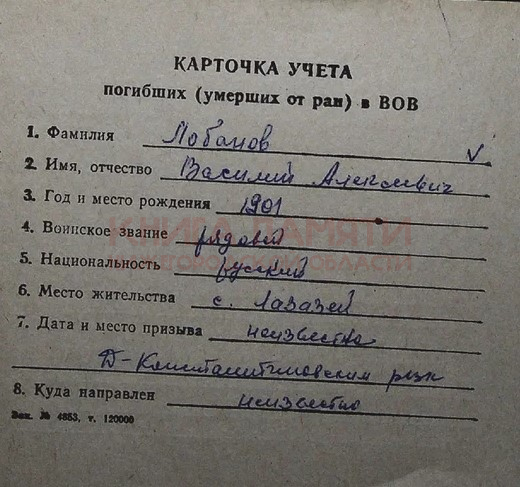 КАРТОЧКА УЧЕТА
погибших (умерших от ран) в ВОВ
1. Фамилия Лобанов
2. Имя, отчество Василий Алексеевич
3. Год и место рождения 1901
4. Воинское звание рядовой
КНИГА ПАМЯТИ
5. Национальность русский
НИЖЕГОРОДСКОЙ ОБЛАСТИ
6. Место жительства с. Лазазей
7. Дата и место призыва неизвестно
Д-Константиновским рвк
8. Куда направлен неизвестно
Зак. № 4853, т. 120000